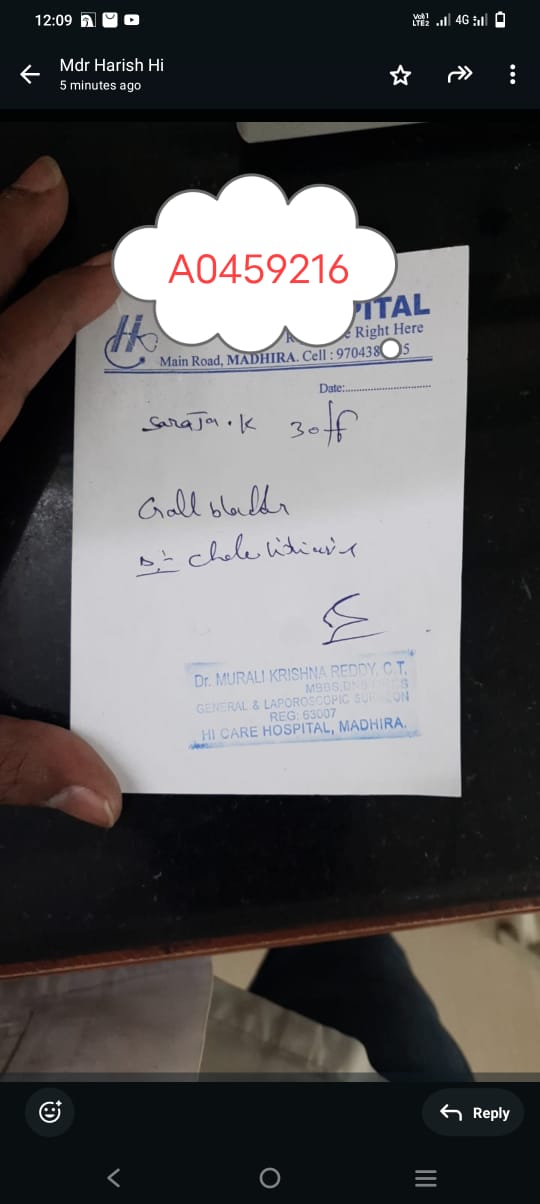 12:09
4G
Mdr Harish Hi
5 minutes ago
A0459216
PITAL
Right Here
Main Road, MADHIRA. Cell : 970438 5
Date:
SaraJa . K 30 / f
Gall bladder
Dr. MURALI KRISHNA REDDY, C.T,
MBBS,
GENERAL & LAPOROSCOPIC SURGEON
REG: 63007
HI CARE HOSPITAL, MADHIRA.
Reply